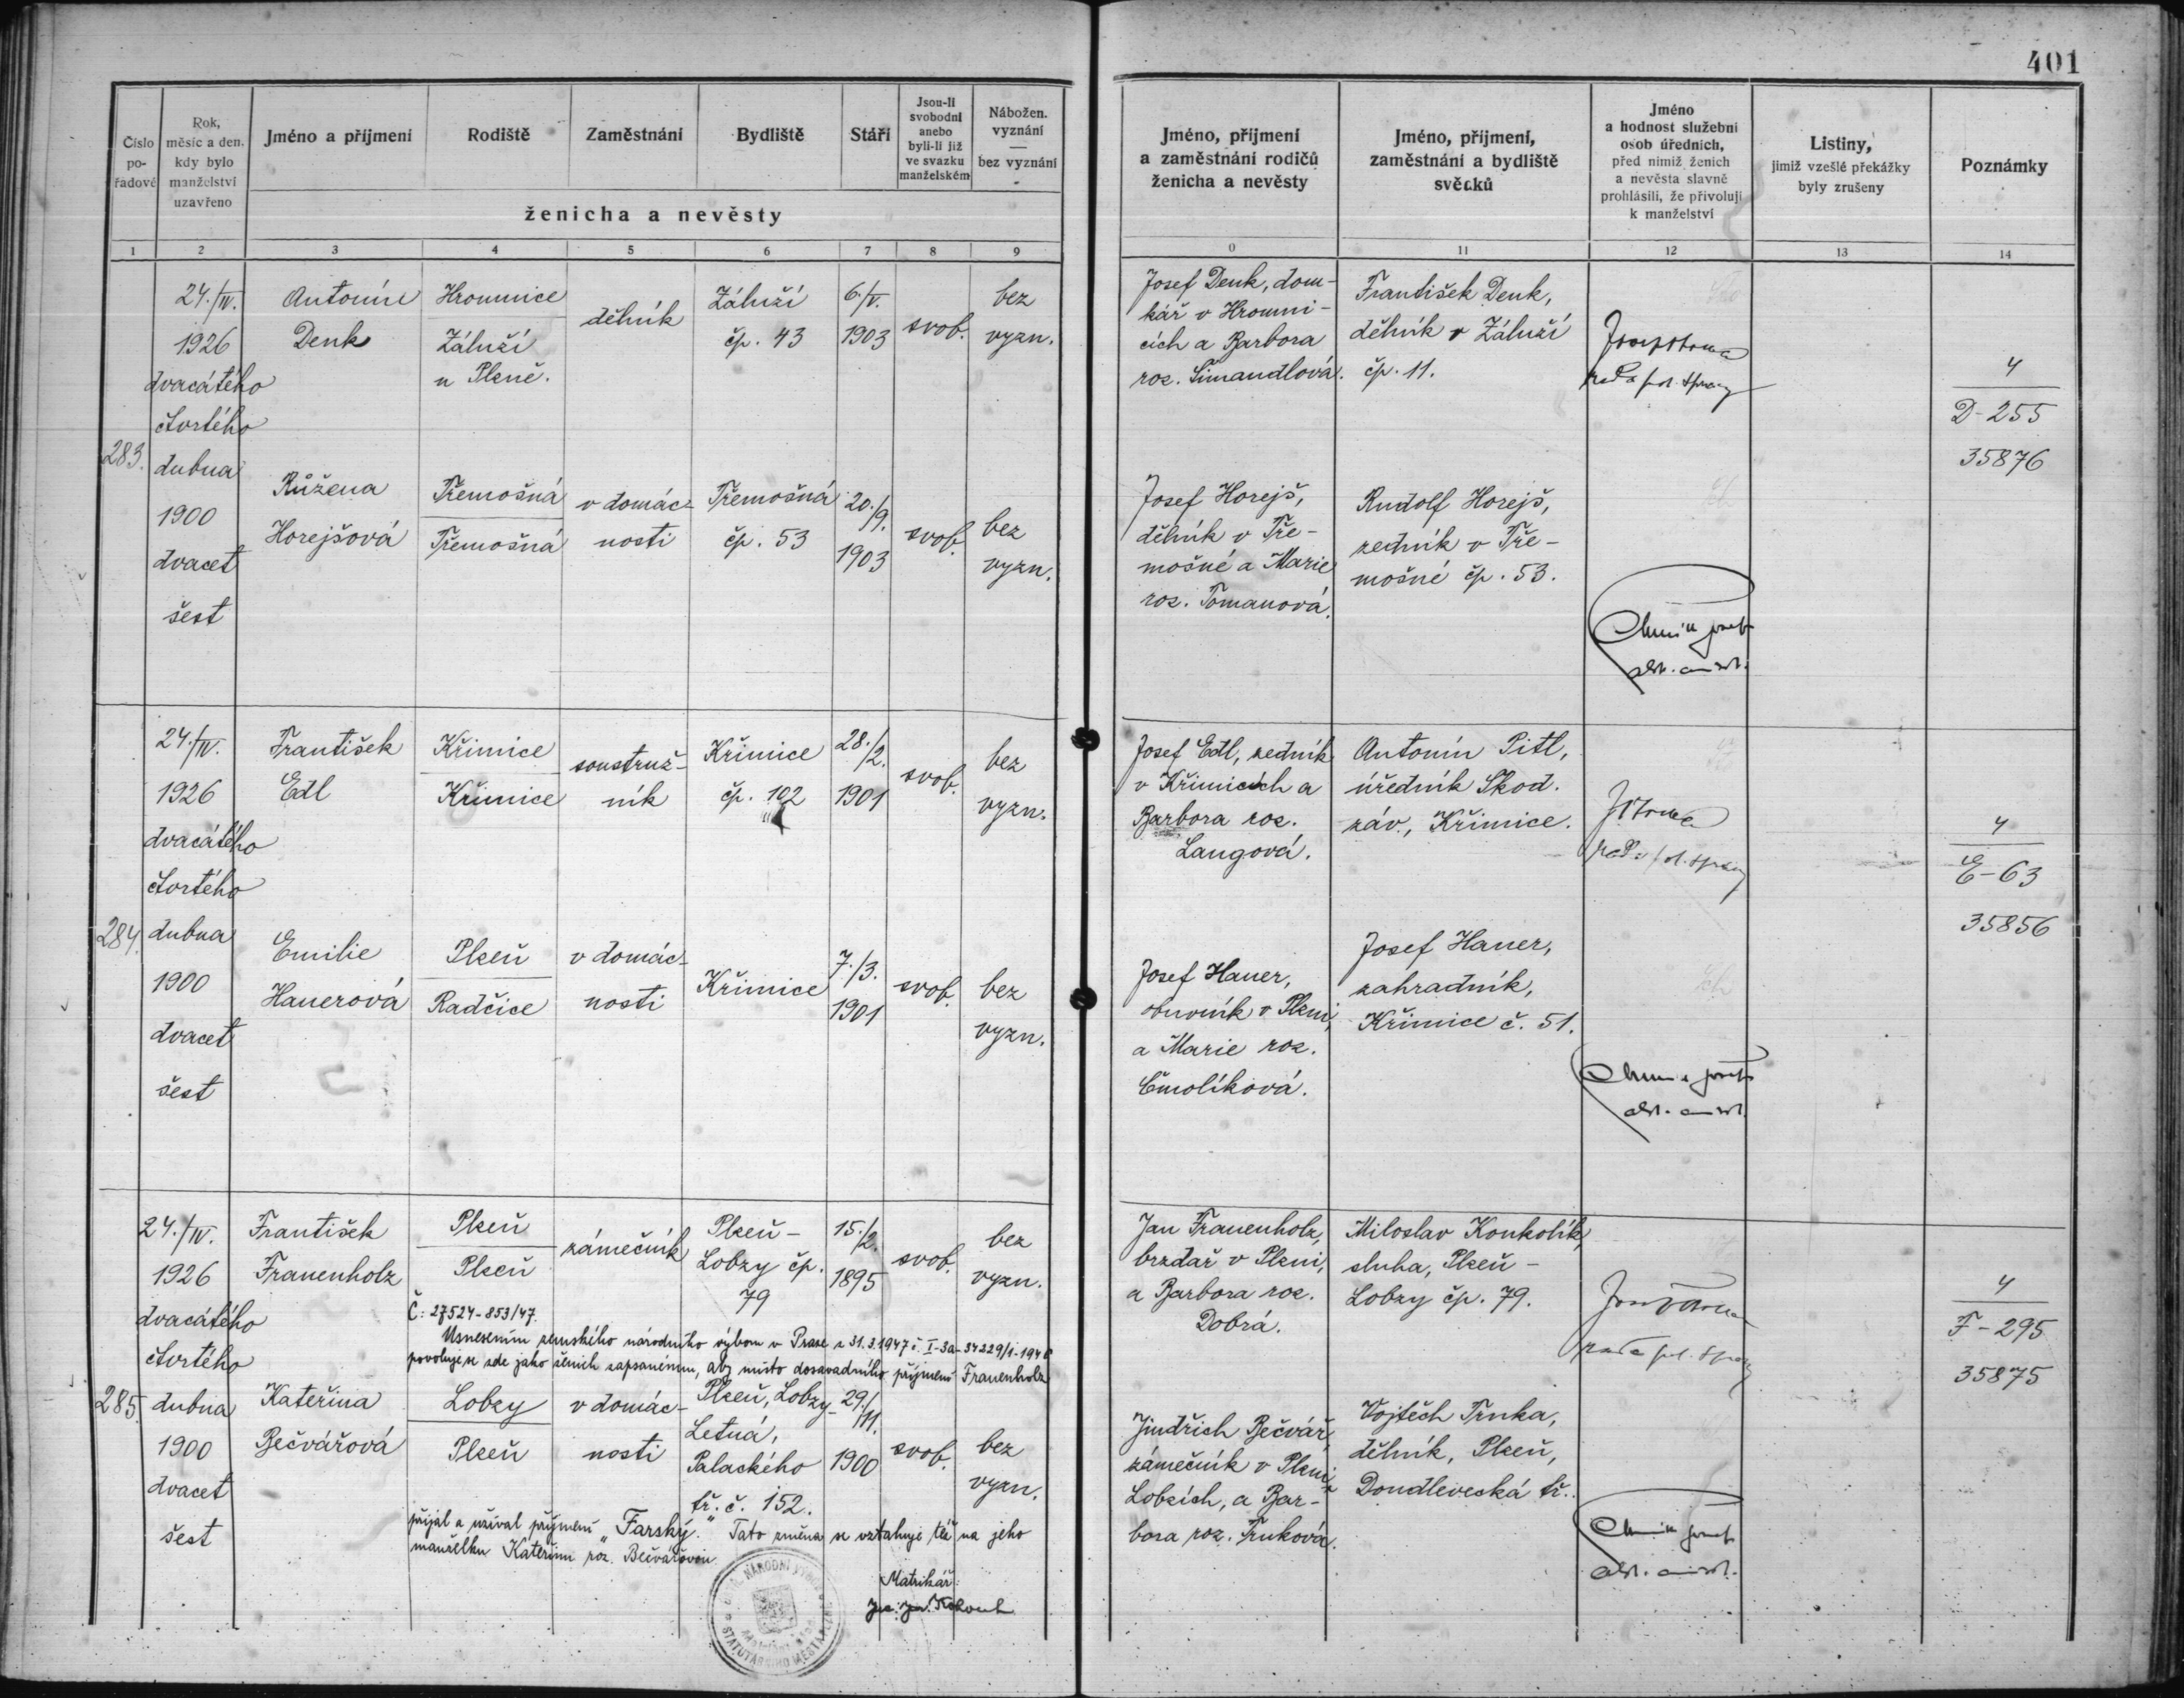 401
Číslo pořadové
Rok, měsíc a den, kdy bylo manželství uzavřeno
Jméno a příjmení
Rodiště
Zaměstnání
Bydliště
Stáří
Jsou-li svobodni anebo byli-li již ve svazku manželském
Nábožen. vyznání — bez vyznání
ženicha a nevěsty
Jméno, příjmení a zaměstnání rodičů ženicha a nevěsty
Jméno, příjmení, zaměstnání a bydliště svědků
Jméno a hodnost služební osob úředních, před nimiž ženich a nevěsta slavně prohlásili, že přivolují k manželství
Listiny, jimiž vzešlé překážky byly zrušeny
Poznámky
1 2 3 4 5 6 7 8 9 0 11 12 13 14
283.
24./IV.
1926
dvacátého
čtvrtého
dubna
1900
dvacet
šest
Antonín
Denk
Hromnice
Záluží
u Plzně.
dělník
Záluží
čp. 43
6./V.
1903
svob.
bez
vyzn.
Josef Denk, dom-
kář v Hromni-
cích a Barbora
roz. Šimandlová.
František Denk,
dělník v Záluží
čp. 11.
4
D-255
35876
Růžena
Horejšová
Třemošná
Třemošná
v domác-
nosti
Třemošná
čp. 53
20./9.
1903
svob.
bez
vyzn.
Josef Horejš,
dělník v Tře-
mošné a Marie
roz. Tomanová.
Rudolf Horejš,
zedník v Tře-
mošné čp. 53.
284.
24./IV.
1926
dvacátého
čtvrtého
dubna
1900
dvacet
šest
František
Edl
Křimice
Křimice
soustruž-
ník
Křimice
čp. 102
28./2.
1901
svob.
bez
vyzn.
Josef Edl, zedník
v Křimicích a
Barbora roz.
Langová.
Antonín Pitl,
úředník Škod.
záv., Křimice.
4
E-63
35856
Emilie
Hauerová
Plzeň
Radčice
v domác-
nosti
Křimice
7./3.
1901
svob.
bez
vyzn.
Josef Hauer,
obuvník v Plzni,
a Marie roz.
Čmolíková.
Josef Hauer,
zahradník,
Křimice č. 51.
285.
24./IV.
1926
dvacátého
čtvrtého
dubna
1900
dvacet
šest
František
Frauenholz
Plzeň
Plzeň
zámečník
Plzeň-
Lobzy čp.
79
15./2.
1895
svob.
bez
vyzn.
Jan Frauenholz,
brzdař v Plzni,
a Barbora roz.
Dobrá.
Miloslav Koukolík,
sluha, Plzeň-
Lobzy čp. 79.
4
F-295
35875
Č: 27524-853/47.
Usnesením zemského národního výboru v Praze z 31.3.1947 č. I-3a-34229/1-1946
povoluje se zde jako ženich zapsanému, aby místo dosavadního příjmení Frauenholz
Kateřina
Bečvářová
Lobzy
Plzeň
v domác-
nosti
Plzeň, Lobzy-
Letná,
Palackého
tř. č. 152.
29./11.
1900
svob.
bez
vyzn.
Jindřich Bečvář,
zámečník v Plzni
Lobzích, a Bar-
bora roz. Trnková.
Vojtěch Trnka,
dělník, Plzeň,
Doudlevecká tř.
přijal a užíval příjmení „Farský." Tato změna se vztahuje též na jeho
manželku Kateřinu roz. Bečvářovou
Matrikář:
NÁRODNÍ VÝBOR
STATUTÁRNÍHO MĚSTA PLZNĚ